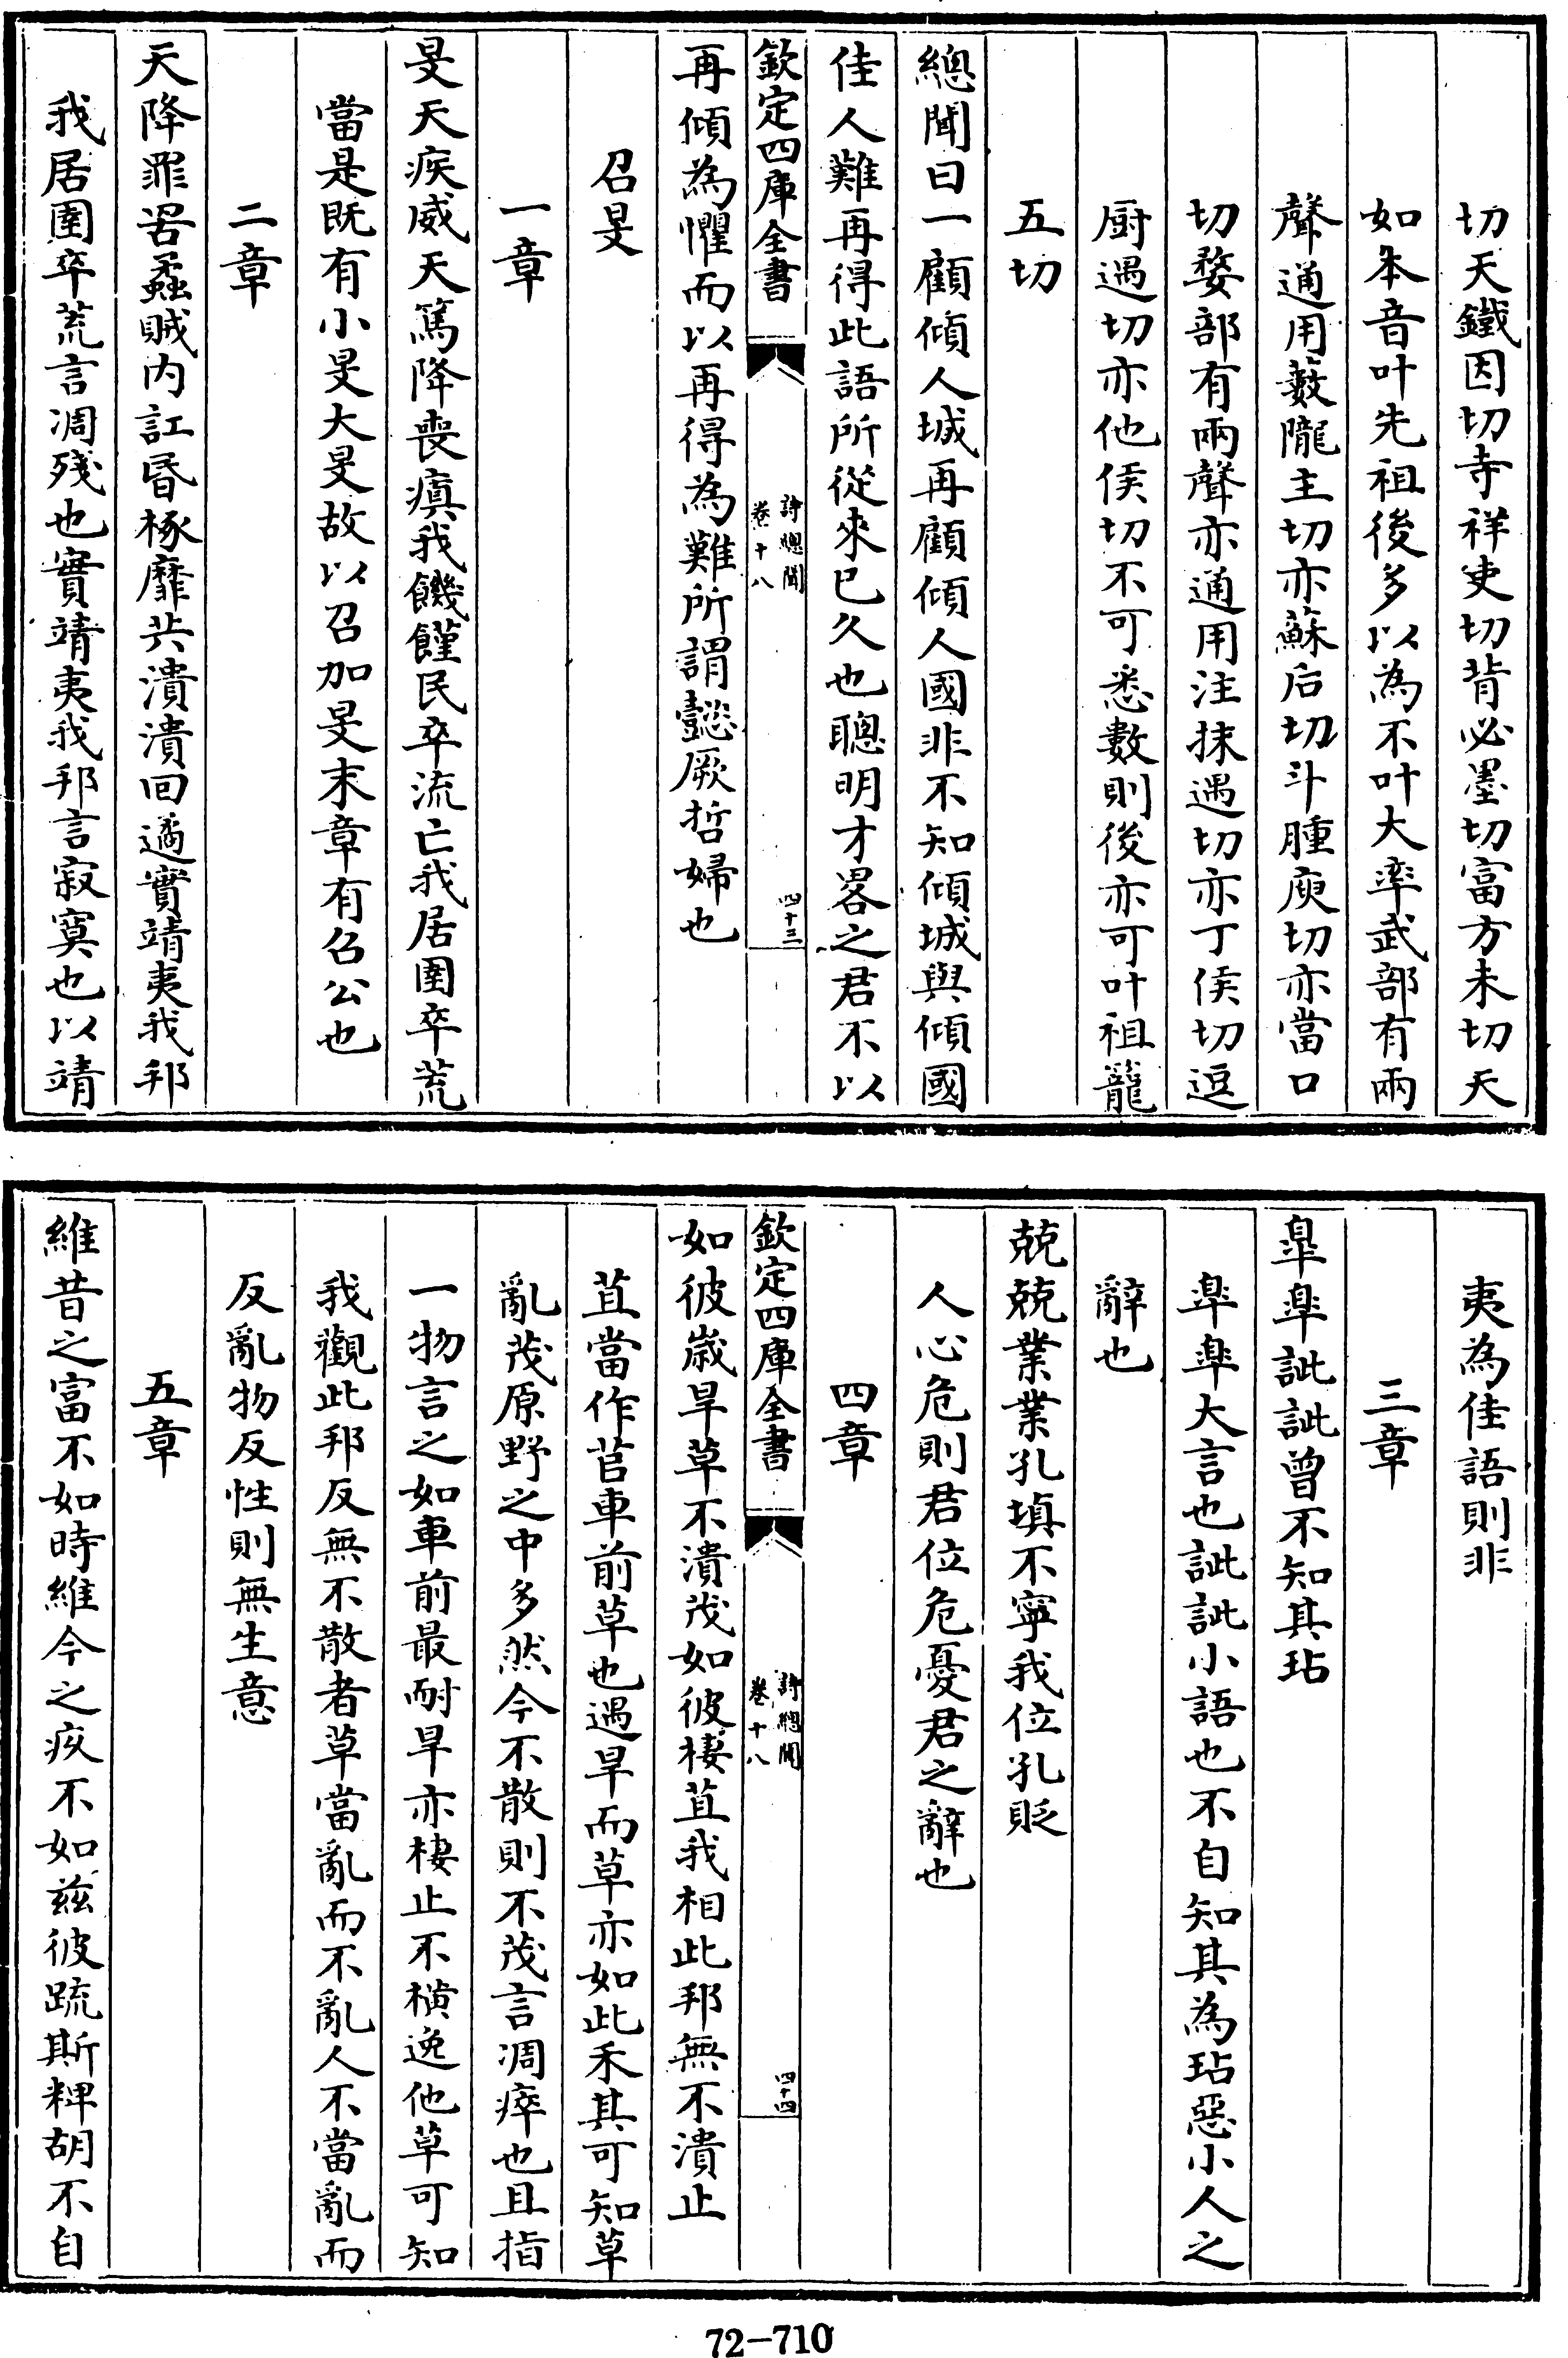 切天鐵因切寺祥吏切背必墨切富方未切天
如本音叶先祖後多以為不叶大率武部有兩
聲通用藪隴主切亦蘇后切斗腫庾切亦當口
切婺部有兩聲亦通用注抹遇切亦丁侯切逗
厨遇切亦他侯切不可悉數則後亦可叶祖籠
五切
總聞曰一顧傾人城再顧傾人國非不知傾城與傾國
佳人難再得此語所從來已久也聰明才畧之君不以
欽定四庫全書
詩總聞
卷十八
四十三
再傾為懼而以再得為難所謂懿厥哲婦也
召旻
一章
旻天疾威天篤降喪瘨我饑饉民卒流亡我居圉卒荒
當是既有小旻大旻故以召加旻末章有召公也
二章
天降罪罟蟊賊内訌昏椓靡共潰潰回遹實靖夷我邦
我居圉卒荒言凋殘也實靖夷我邦言寂寞也以靖
夷為佳語則非
三章
臯臯訿訿曾不知其玷
臯臯大言也訿訿小語也不自知其為玷惡小人之
辭也
兢兢業業孔填不寧我位孔貶
人心危則君位危憂君之辭也
四章
欽定四庫全書
詩總聞
卷十八
四十四
如彼歲旱草不潰茂如彼棲苴我相此邦無不潰止
苴當作苢車前草也遇旱而草亦如此禾其可知草
亂茂原野之中多然今不散則不茂言凋瘁也且指
一物言之如車前最耐旱亦棲止不横逸他草可知
我觀此邦反無不散者草當亂而不亂人不當亂而
反亂物反性則無生意
五章
維昔之富不如時維今之疚不如兹彼疏斯粺胡不自
72-710